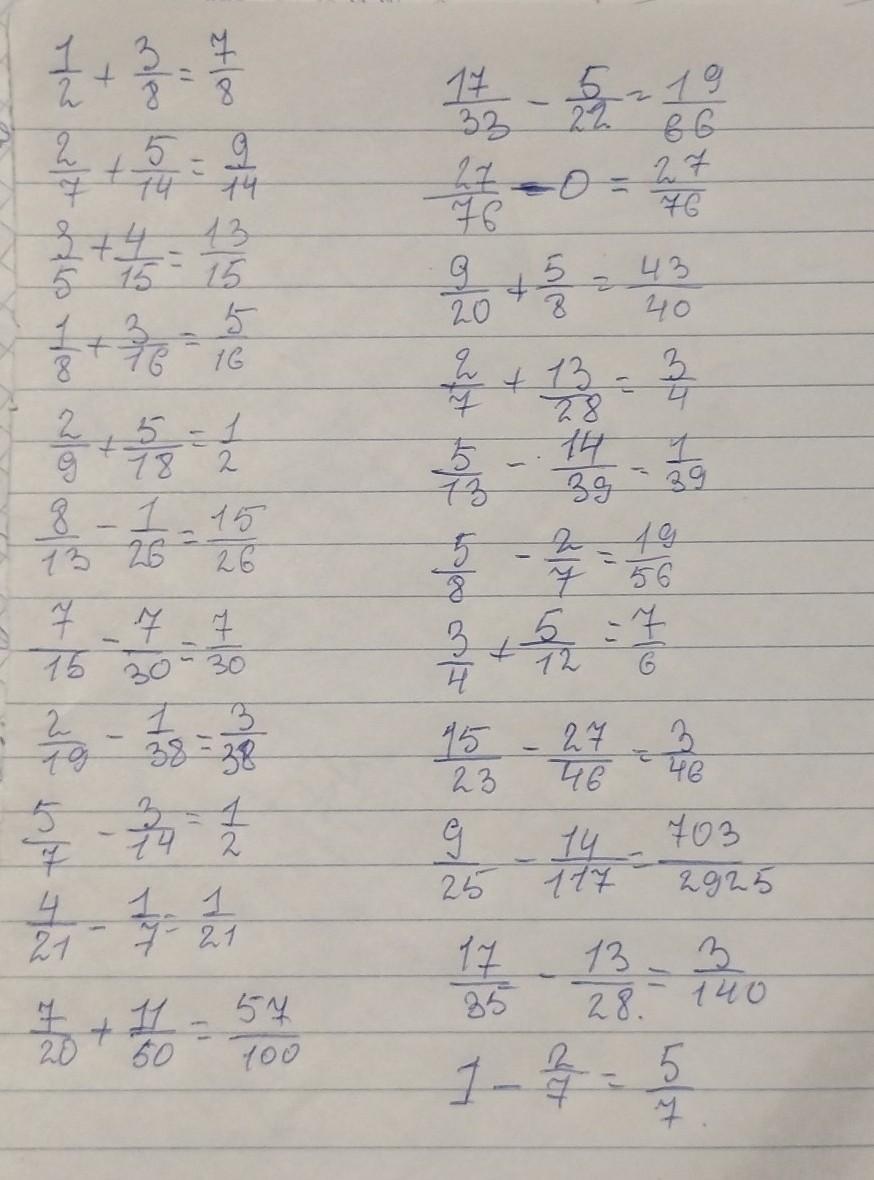 1/2 + 3/8 = 7/8
2/7 + 5/14 = 9/14
3/5 + 4/15 = 13/15
1/8 + 3/16 = 5/16
2/9 + 5/18 = 1/2
8/13 - 1/26 = 15/26
7/15 - 7/30 = 7/30
2/19 - 1/38 = 3/38
5/7 - 3/14 = 1/2
4/21 - 1/7 = 1/21
7/20 + 11/50 = 57/100
17/33 - 5/22 = 19/66
27/76 - 0 = 27/76
9/20 + 5/8 = 43/40
2/7 + 13/28 = 3/4
5/13 - 14/39 = 1/39
5/8 - 2/7 = 19/56
3/4 + 5/12 = 7/6
15/23 - 27/46 = 3/46
9/25 - 14/117 = 703/2925
17/35 - 13/28 = 3/140
1 - 2/7 = 5/7